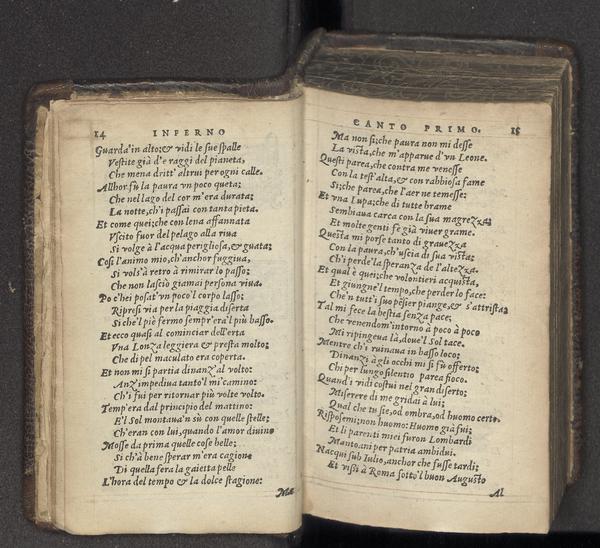 14 INFERNO
Guarda'in alto; & vidi le sue spalle
Vestite già d'e raggi del pianeta,
Che mena dritt' altrui per ogni calle.
Allhor fù la paura vn poco queta;
Che nel lago del cor m'era durata;
La notte, ch'i passai con tanta pieta.
Et come quei; che con lena affannata
Vscito fuor del pelago alla riua
Si volge à l'acqua perigliosa, & guata;
Così l'animo mio, ch'anchor fuggiua,
Si vols'à retro à rimirar lo passo;
Che non lasciò giamai persona viua.
Po c'hei posat'vn poco'l corpo lasso;
Ripresi via per la piaggia diserta
Si che'l piè fermo sempr'era'l più basso.
Et ecco quasi al cominciar dell'erta
Vna Lonza leggiera & presta molto;
Che di pel maculato era coperta.
Et non mi si partia dinanz'al volto:
Anz'impediua tanto'l mi'camino:
Ch'i fui per ritornar più volte volto.
Temp'era dal principio del mattino:
E'l Sol montaua'n sù con quelle stelle;
Ch'eran con lui, quando l'amor diuino
Mosse da prima quelle cose belle;
Si ch'à bene sperar m'era cagione
Di quella fera la gaietta pelle
L'hora del tempo & la dolce stagione:
Ma
CANTO PRIMO. 15
Ma non si; che paura non mi desse
La vista, che m'apparue d'vn Leone.
Questi parea, che contra me venesse
Con la test'alta, & con rabbiosa fame
Si; che parea, che l'aer ne temesse:
Et vna Lupa; che di tutte brame
Sembiaua carca con la sua magrezza;
Et molte genti fe già viuer grame.
Questa mi porse tanto di grauezza
Con la paura, ch'uscia di sua vista;
Ch'i perde' la speranza de l'altezza.
Et qual è quei; che volontieri acquista,
Et giungne'l tempo, che perder lo face:
Che'n tutt'i suo pẽsier piange, & s'attrista;
Tal mi fece la bestia senza pace;
Che venendom'intorno à poco à poco
Mi ripingeua là, doue'l Sol tace.
Mentre ch'i ruinaua in basso loco;
Dinanzi à gli occhi mi si fù offerto;
Chi per lungo silentio parea fioco.
Quand'i vidi costui nel gran diserto;
Miserere di me gridai à lui;
Qual che tu sie, od ombra, od huomo certo.
Risposemi; non huomo: Huomo già fui;
Et li parenti miei furon Lombardi
Mantoani per patria ambidui.
Nacqui sub Iulio, anchor che fusse tardi;
Et vissi à Roma sotto'l buon Augusto
Al